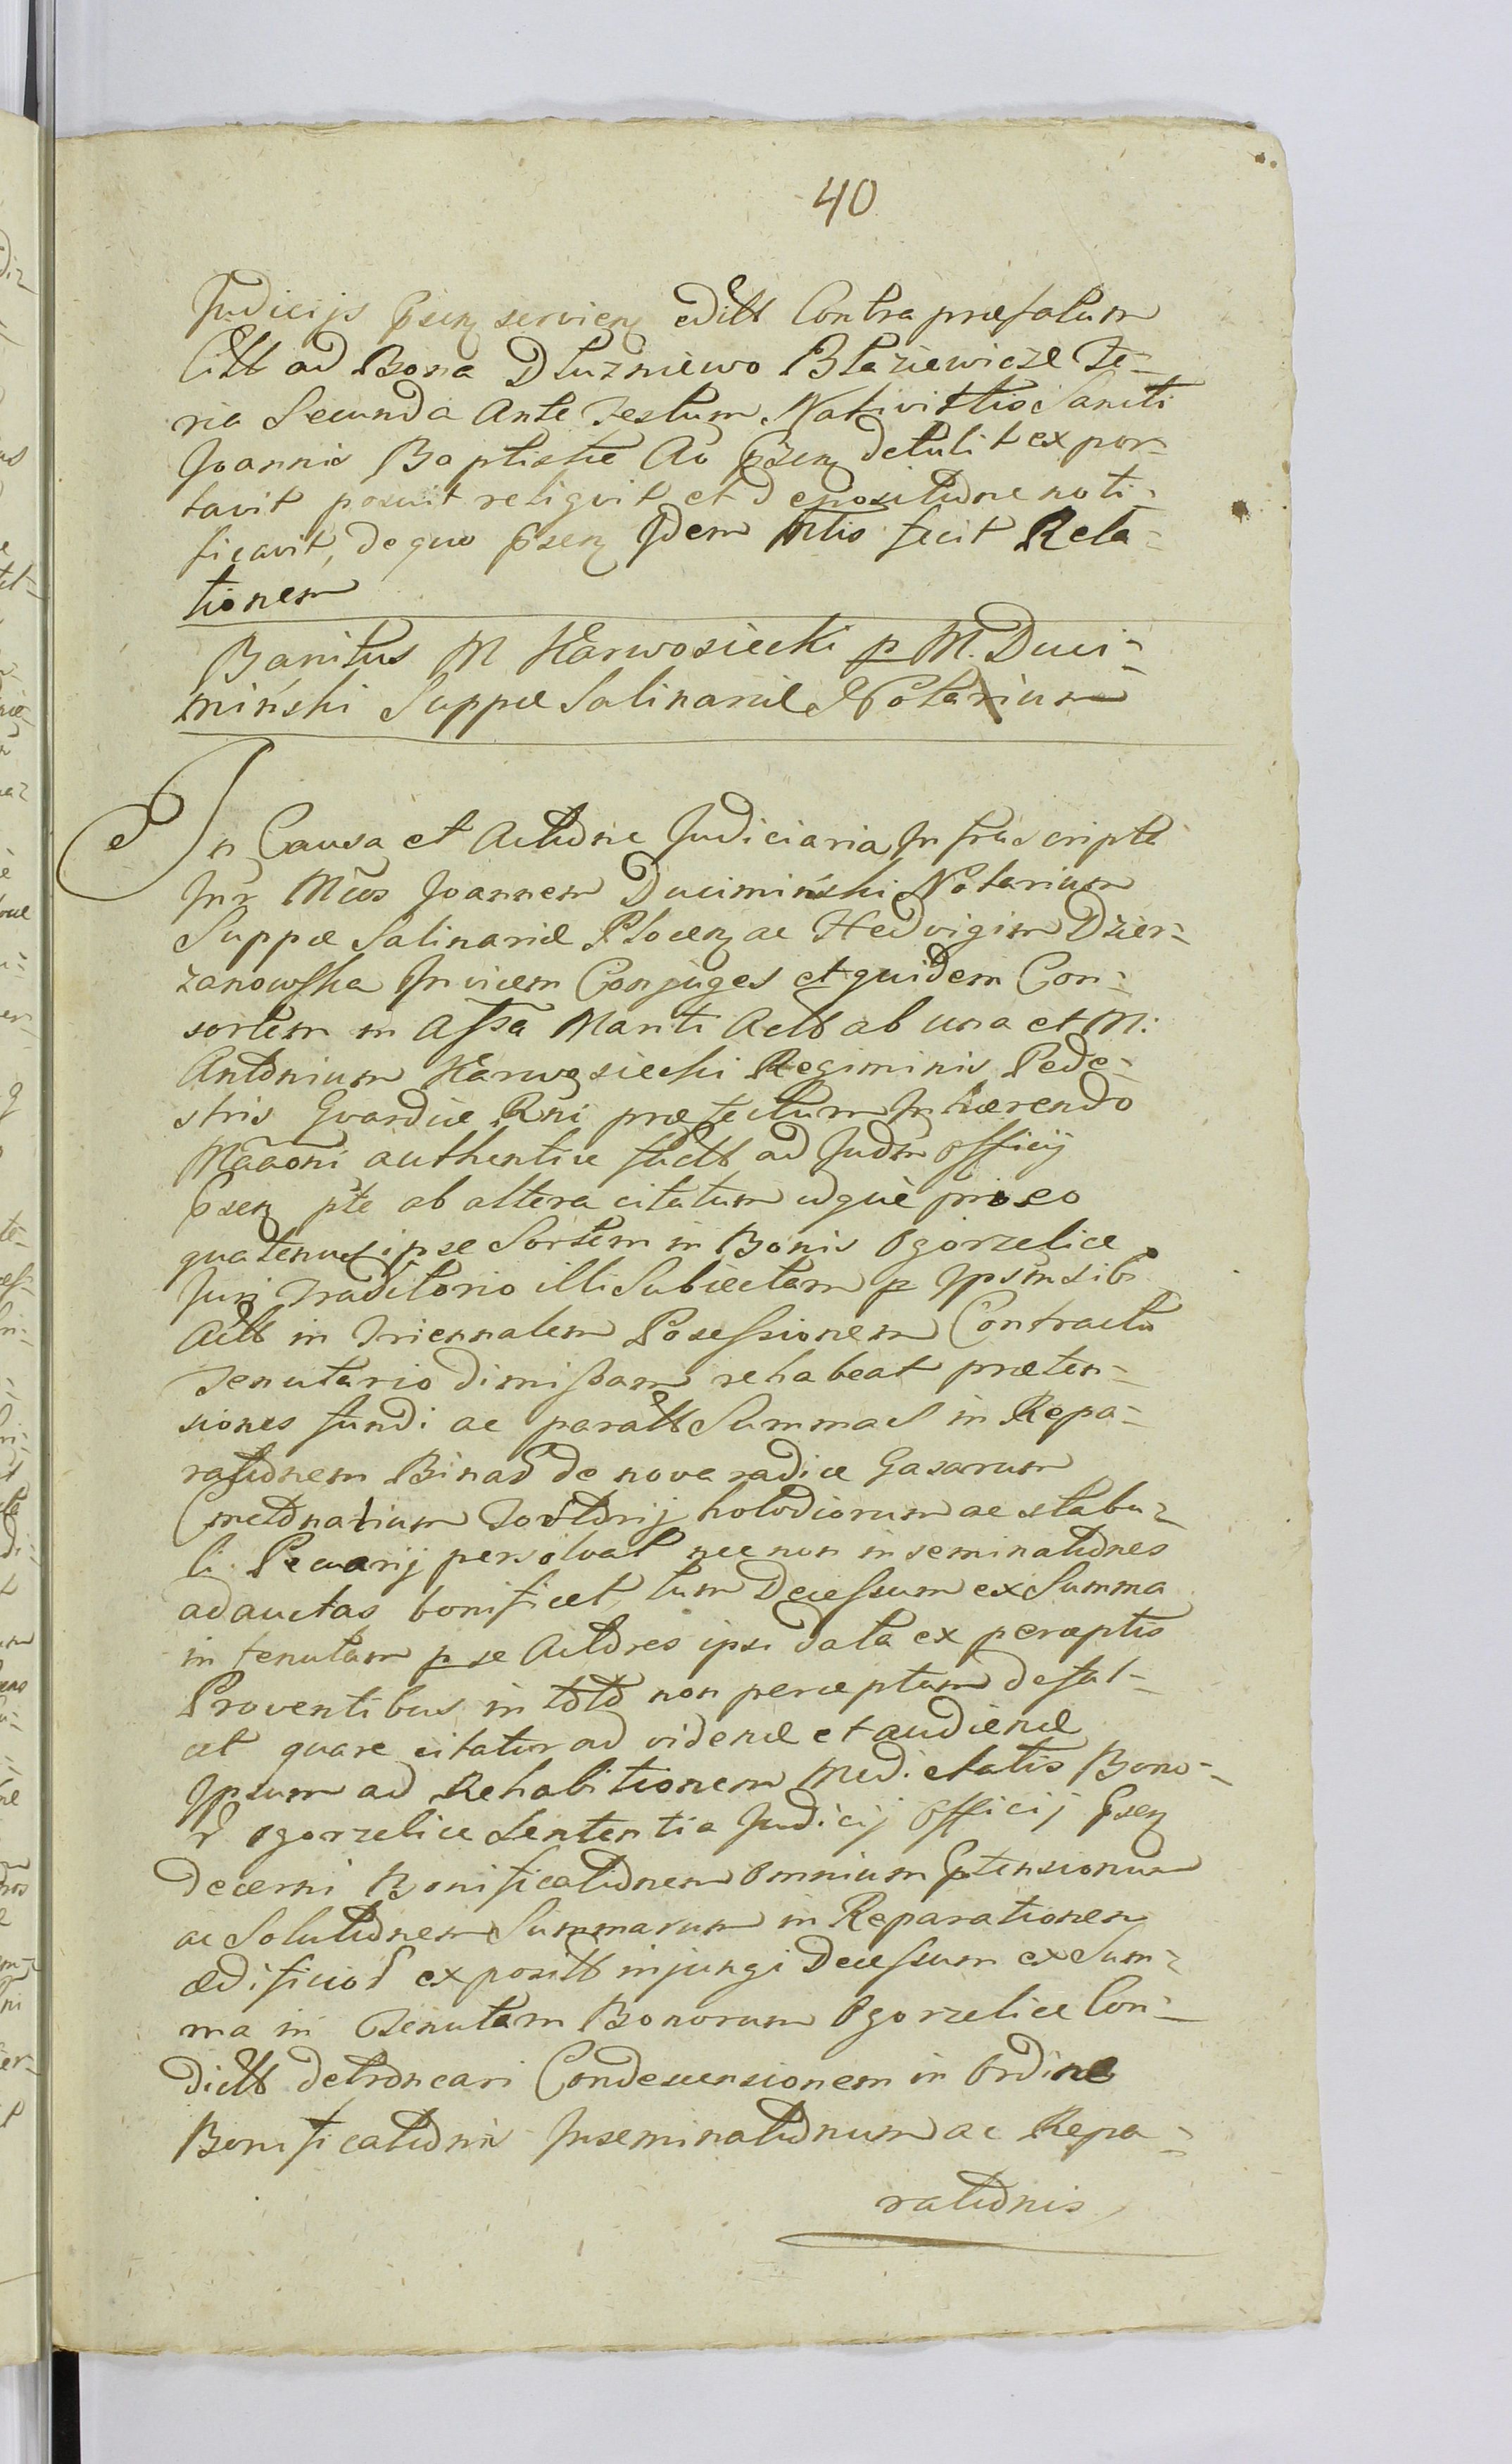 40
Judicijs Psen servien editt Contra præfatum
Citt ad Bona Dłuzniewo Błaziewicze Fe-
ria Secunda Ante Festum Nativittis Sancti
Joannis Baptistæ Ao Psen detulit expor-
tavit posuit reliqvit et d epositione noti-
ficavit, de quo Psen Idem Mtis fecit Rela-
tionem
Banitus M Karwosiecki p M. Duci-
miński Suppæ Salinariæ Notarium
In Causa et Actione Judiciaria Infrascripta
Intr Mcos Joannem Duciminski Notarium
Suppæ Salinariæ Plocen ac Hedvigim Dzier-
zanowska Invicem Conjuges et quidem Con-
sortem in Assa Mariti Actt ab una et M:
Antonium Karwosiecki Regiminis Pede-
stris Gvardiæ Rni præfectum Inhærendo
Māaoni authentice factt ad Judm Officij
Psen pte ab altera citatum idque pro eo
quatenus ipse Sortem in Bonis Ogorzelice
Juri traditorio illi Subiectam p Ipsm sibi
Actt in Triennalem Posessionem Contractu
Tenutario dimissam rehabeat præten-
siones fundi ac paratt Summas in Repa-
rationem Binas de nova radice Casarum
Cmetonalium Tortorij holodiorum ac stabu-
li Pecuarij persolvat nec non inseminationes
adauctas bonificet, tum Decessum ex Summa
in tenutam p se Actores ipsi data ex perceptis
Proventibus in toto non perceptum defal-
cet quare citatur ad videnđ et audienđ
Ipsum ad Rehabitionem Medietatis Bono-
r Ogorzelice Sententia Judicij Officij Psen
decerni Bonificationem Omnium Ptensionum
ac Solutionem Summarum in Reparationem
ædificior expositt injungi Decessum ex Sum-
ma in Tenutam Bonorum Ogorzelice Con-
dictt detroncari Condescensionem in Ordine
Bonificationis Inseminationum ac Repa-
rationis